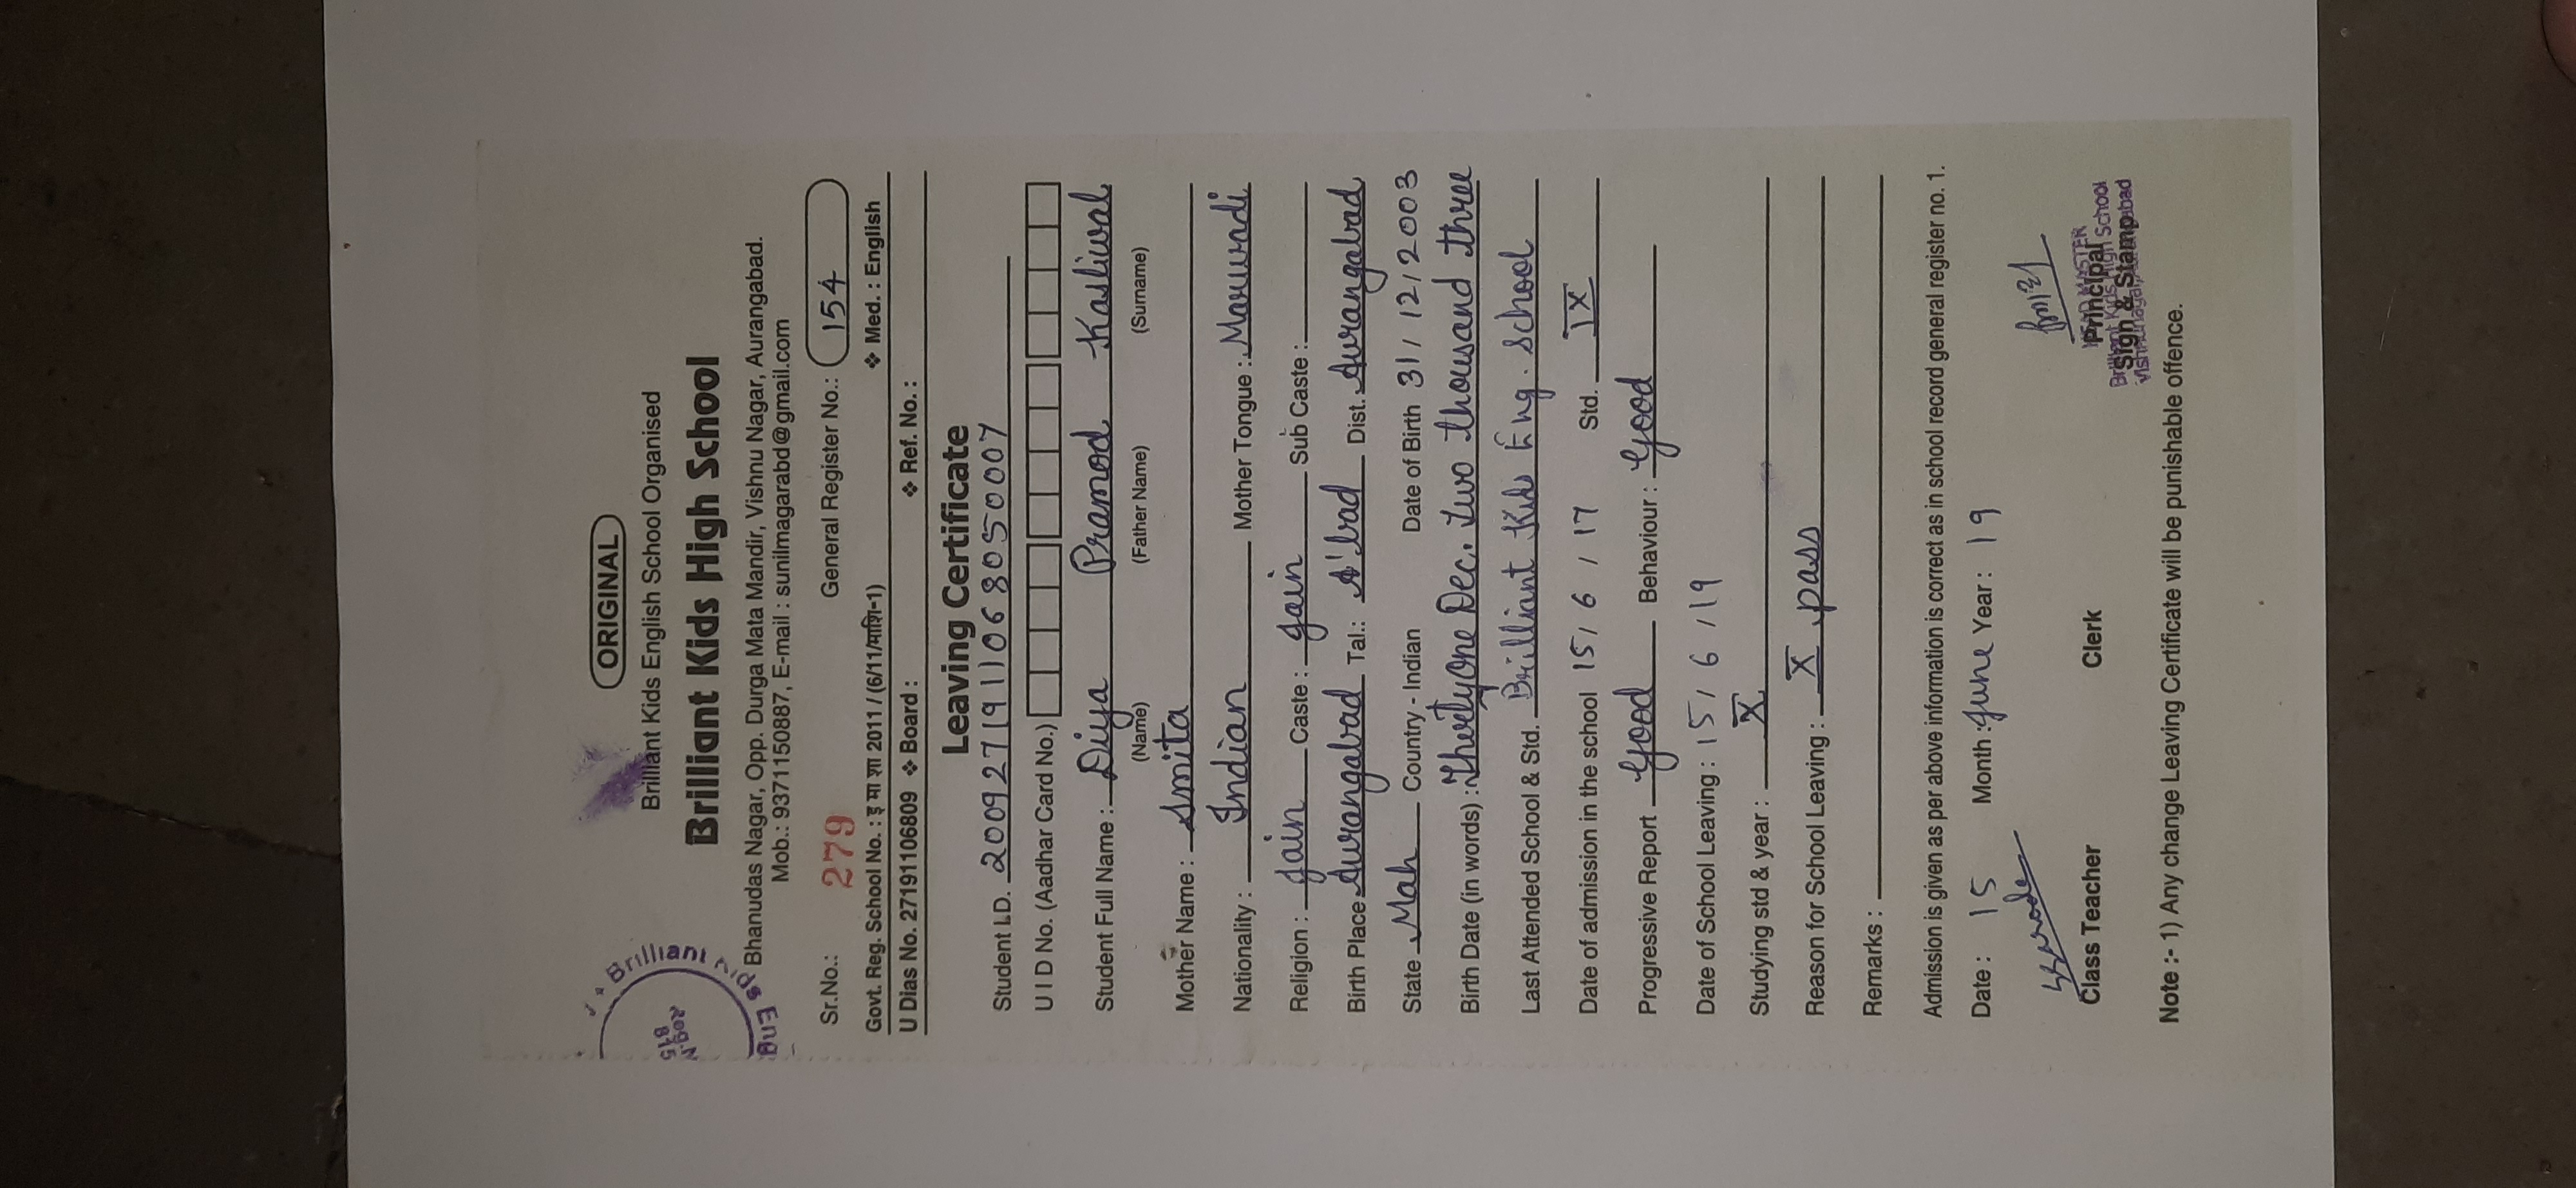 ORIGINAL
Brilliant Kids English School Organised
Brilliant Kids High School
Bhanudas Nagar, Opp. Durga Mata Mandir, Vishnu Nagar, Aurangabad.
Mob.: 9371150887, E-mail : sunilmagarabd@gmail.com
Brilliant Kids Eng
Reg.N
875
Sr.No.: 279 General Register No.: 154
Govt. Reg. School No. : इ मा शा 2011 / (6/11/माशि-1) ❖ Med. : English
U Dias No. 27191106809 ❖ Board : ❖ Ref. No. :
Leaving Certificate
Student I.D. 2009271911068050007
U I D No. (Aadhar Card No.)
Student Full Name : Diya Pramod Kasliwal
(Name) (Father Name) (Surname)
Mother Name : Smita
Nationality : Indian Mother Tongue : Marwadi
Religion : Jain Caste : Jain Sub Caste :
Birth Place Aurangabad Tal.: A'bad Dist. Aurangabad
State Mah Country - Indian Date of Birth 31/12/2003
Birth Date (in words) : ThirtyOne Dec. two thousand three
Last Attended School & Std. Brilliant Kids Eng. School
Date of admission in the school 15/6/17 Std. IX
Progressive Report Good Behaviour : Good
Date of School Leaving : 15/6/19
Studying std & year : X
Reason for School Leaving : X pass
Remarks :
Admission is given as per above information is correct as in school record general register no. 1.
Date : 15 Month : June Year : 19
Class Teacher Clerk Principal
Sign & Stamp
HEAD MASTER
Brilliant Kids High School
Vishnunagar, Aurangabad
Note :- 1) Any change Leaving Certificate will be punishable offence.